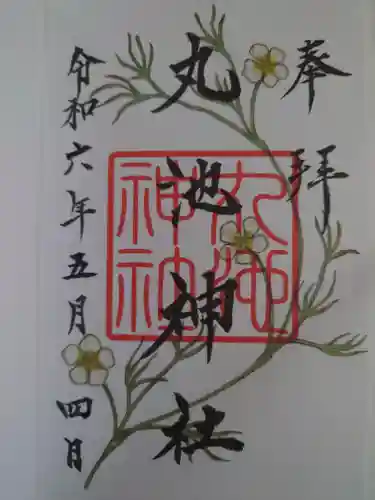 奉拝
丸池神社
丸池
神社
令和六年五月四日